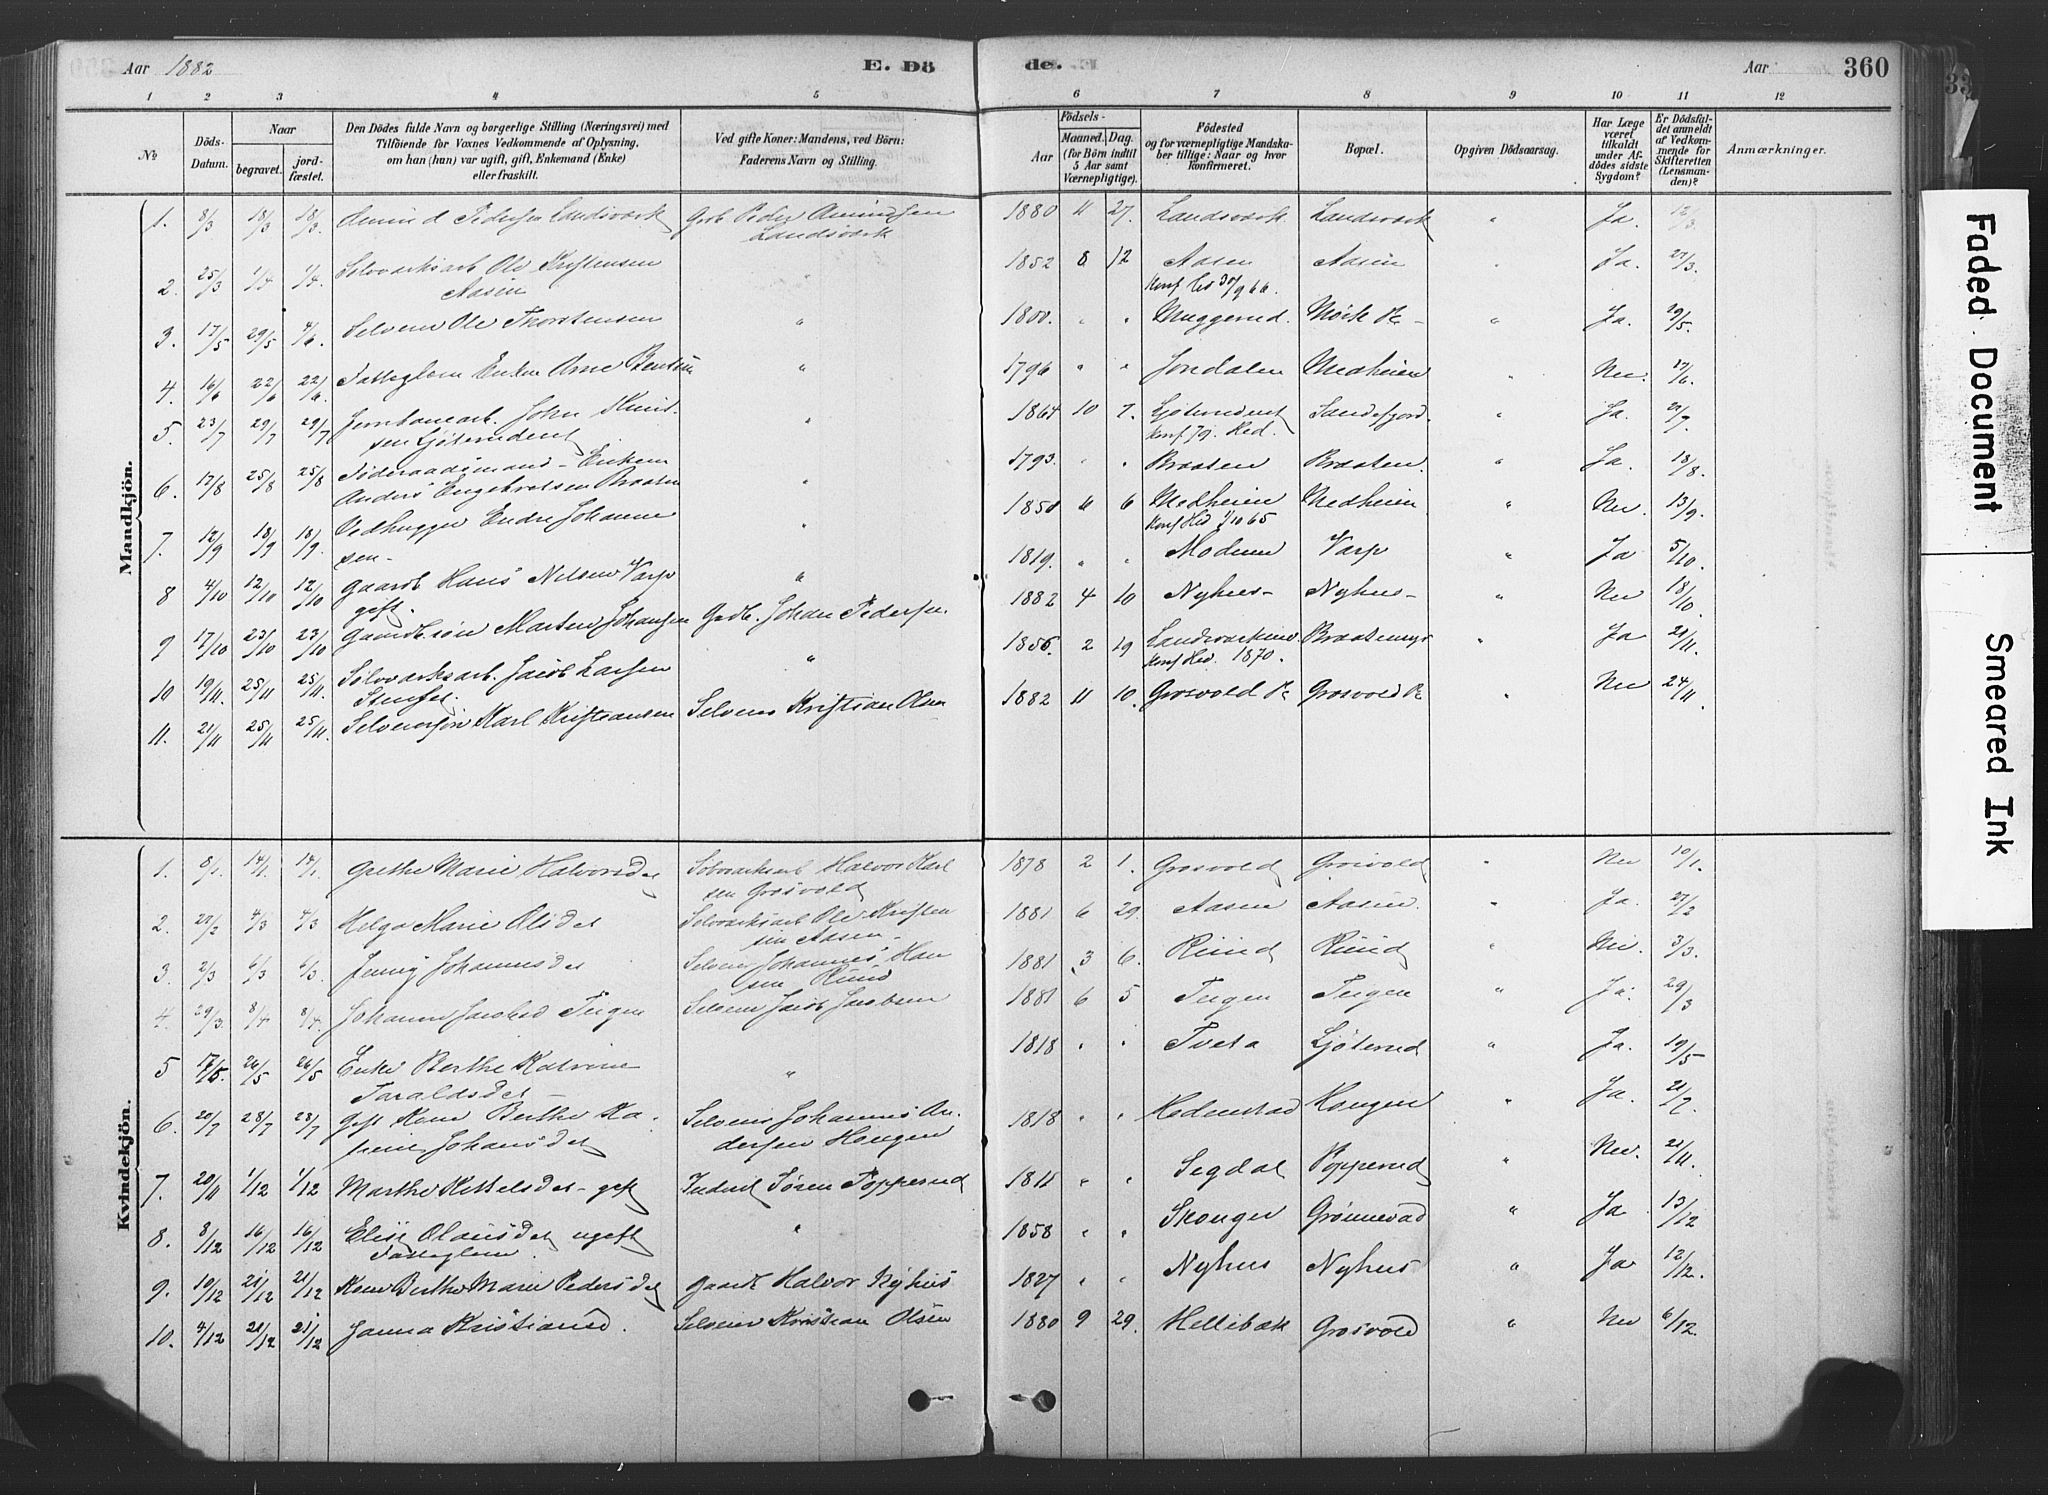 Aar 1882 E. Dö de. Aar 360
1 2 3 4 5 6 7 8 9 10 11 12
No
Döds-
Datum.
Naar
begravet.
jord-
fæstet.
Den Dödes fulde Navn og borgerlige Stilling (Næringsvei) med
Tilföiende for Voxnes Vedkommende af Oplysning,
om han (hun) var ugift, gift, Enkemand (Enke)
eller fraskilt.
Ved gifte Koner: Mandens, ved Börn:
Faderens Navn og Stilling.
Födsels-
Aar
Maaned. Dag.
(for Börn indtil
5 Aar samt
Værnepligtige).
Födested
og for værnepligtige Mandska-
ber tillige: Naar og hvor
konfirmeret.
Bopæl.
Opgiven Dödsaarsag.
Har Læge
været
tilkaldt
under Af-
dödes sidste
Sygdom?
Er Dödsfal-
det anmeldt
af Vedkom-
mende for
Skifteretten
(Lensman-
den)?
Anmærkninger.
Mandkjön.
1. 8/3 18/3 18/3. Pedersen Landsværk Peder Landsværk 1880 11 27. Landsværk Landsværk " Ja. 12/3.
2. 25/3 1/4 1/4. Sølvværksarb. Ole Kristensen Aasen 1852 8 12 Aasen Aasen " Ja. 27/3.
Konf Hed 30/9 66.
3. 17/5 29/5 4/6. Selveier Ole Thorstensen " 1800. " " Muggerud. Mørk " Ja. 29/5.
4. 16/6 22/6 22/6. Fattiglem Enkem Arne Bentsen " 1796 " " Jondalen Medheien " Nei. 17/6.
5. 23/7 29/7 29/7 Jernbanearb. John Ljøterudeiet " 1864 10 7. Ljøterudeiet Sandefjord. " Ja. 27/7.
Konf 79. Hed.
6. 17/8 25/8 25/8 Föderaadsmand - Enkem Anders Engebretsen Braaten " 1793. " " Braaten Braaten. " Ja. 18/8.
7. 12/9 18/9 18/9. Vedhugger Endre Johannesen - " 1850 6 6 Medheien Medheien " Nei. 13/9.
Konf Hed 1/10 65
8 4/10 12/10 12/10 Gaardb. Hans Nilsen Varp gift. " 1819. " " Modum Varp " Ja 5/10.
9 17/10 23/10 23/10 Gaardb.søn Marten Johansen Gaardb. Johan Pedersen. 1882 4 10 Nyhus - Nyhus - " Nei 18/10.
10 19/11. 25/11 25/11. Sølvværksarb. Jacob Larsen " 1856. 2 19 Braatemyr " Ja 21/11.
Konf Hed. 1870.
11. 21/11 25/11 25/11. Selveiersøn Karl Kristiansen Selveier Kristian Olsen 1882 11 10. Grosvold Grosvold " Nei 24/11.
Kvindekjön.
1. 8/1. 14/1. 14/1. Grethe Marie Halvorsdet Sølvværksarb Halvor Karlsen Grosvold 1878 2 1. Grosvold Grosvold " Nei 10/1.
2. 27/2 4/3 4/3 Helga Marie Olsdet Sølvværksarb Ole Kristensen Aasen - 1881 6 29. Aasen Aasen. " Ja. 27/2
3. 2/3 6/3 6/3. Jenny Johannesdet Selveier Johannes Hansen Ruud 1881 3 6. Ruud Ruud " Nei. 3/3.
4. 29/3. 8/4 8/4. Johanne Jacobsd Teigen Selveier Jacob Jacobsen 1881 6 5 Teigen Teigen " Ja. 29/3
5 17/5. 26/5 26/5 Enke Berthe Katrine Taraldsdet - " 1818 " " Tveta Ljøterud " Ja. 19/5
6. 20/7 28/7 28/7 Gift Kone Berthe Katrine Johansdet Selveier Johannes Andersen Haugen 1818 " " Hedenstad Haugen " Ja. 21/7
7. 20/11 1/12 1/12 Marthe Kittelsdet - gift Inderst Søren Popperud 1811 " " Segdal Popperud " Nei. 21/11.
8. 8/12 16/12 16/12 Elise Olausdet ugift Fattiglem. " 1858 " " Skauger Grønnevad " Ja 13/12
9. 10/12 21/12 21/12 Kone Berthe Marie Pedersdet Gaardb Halvor Nyhus 1827 " " Nyhus Nyhus " Ja 12/12.
10. 4/12 21/12 21/12 Janna Kristiansd. Selveier Kristian Olsen 1880 9 29. Hellebæk Grosvold " Nei 6/12.
Faded Document
Smeared Ink